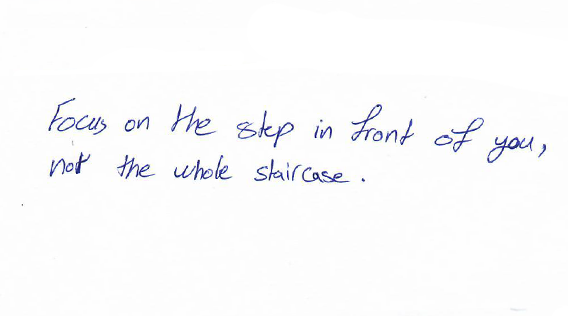 Focus on the step in front of you,
not the whole staircase.